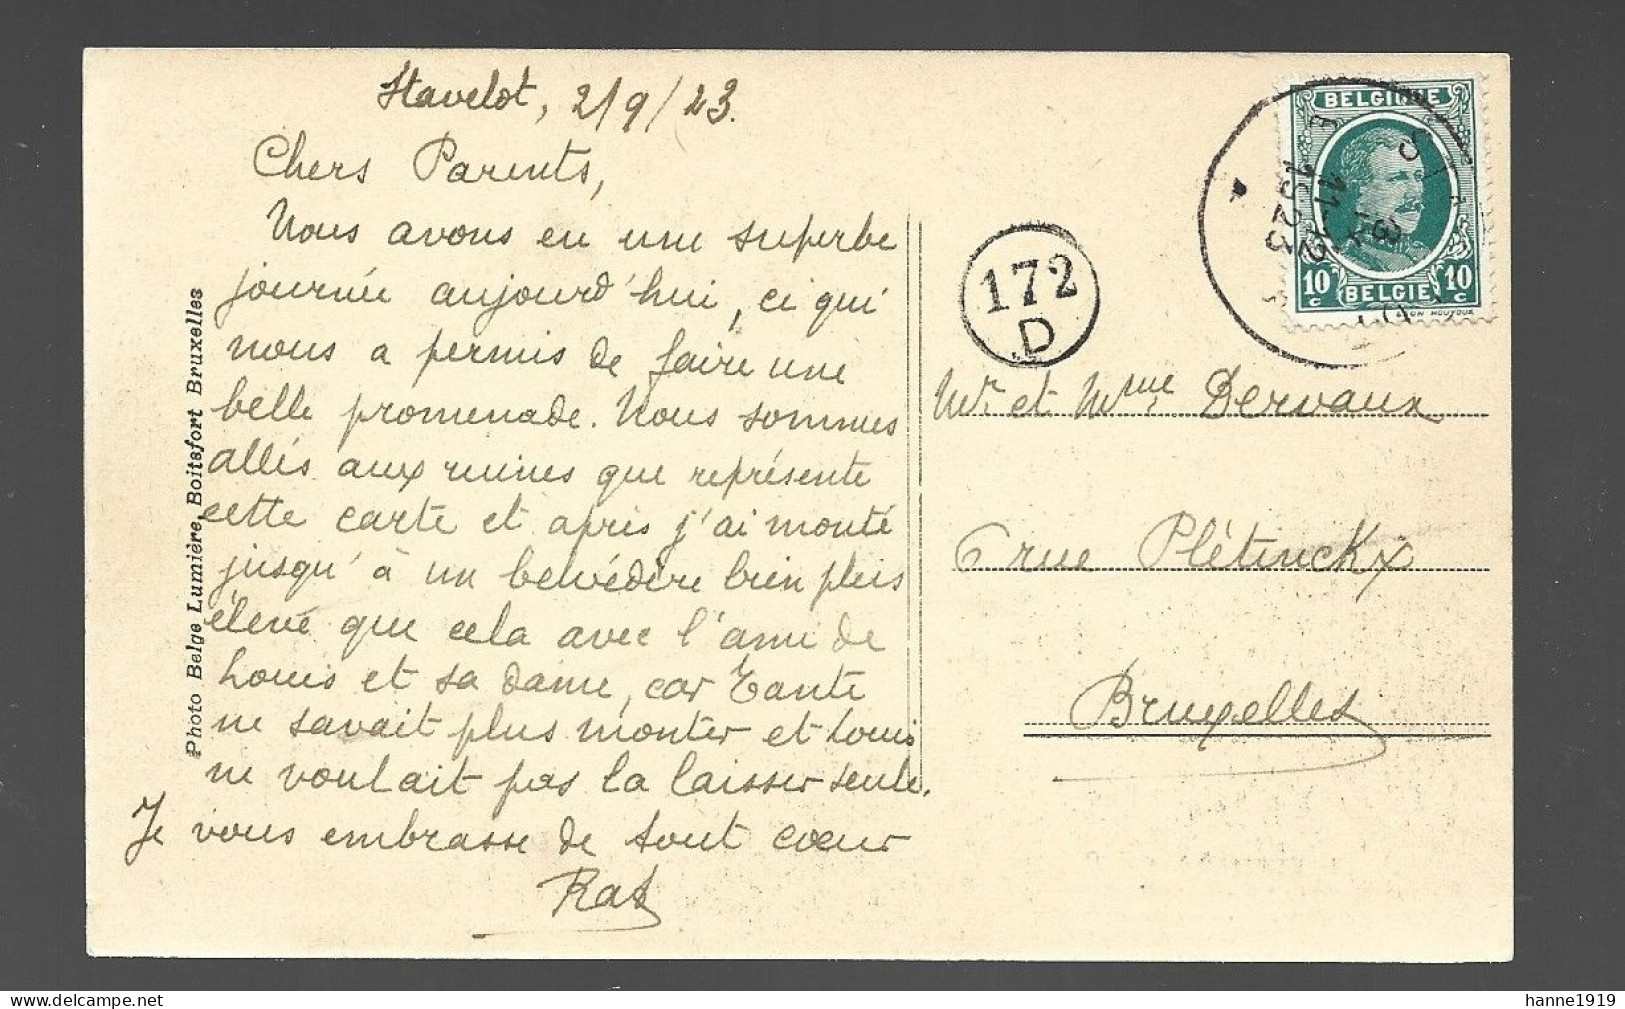 Stavelot, 2/9/23.
Chers Parents,
Nous avons eu une superbe
journée aujourd'hui, ce qui
nous a permis de faire une
belle promenade. Nous sommes
allés aux ruines que représente
cette carte et après j'ai monté
jusqu'à un belvédère bien plus
élevé que cela avec l'ami de
Louis et sa dame, car Tante
ne savait plus monter et Louis
ne voulait pas la laisser seule.
Je vous embrasse de tout cœur
Photo Belge Lumière, Boitsfort Bruxelles
172
D
BELGIQUE
10 c BELGIE 10 c
11-12
1923
Mr. et Mme Dervaux
6 rue Plétinckx
Bruxelles
hanne1919